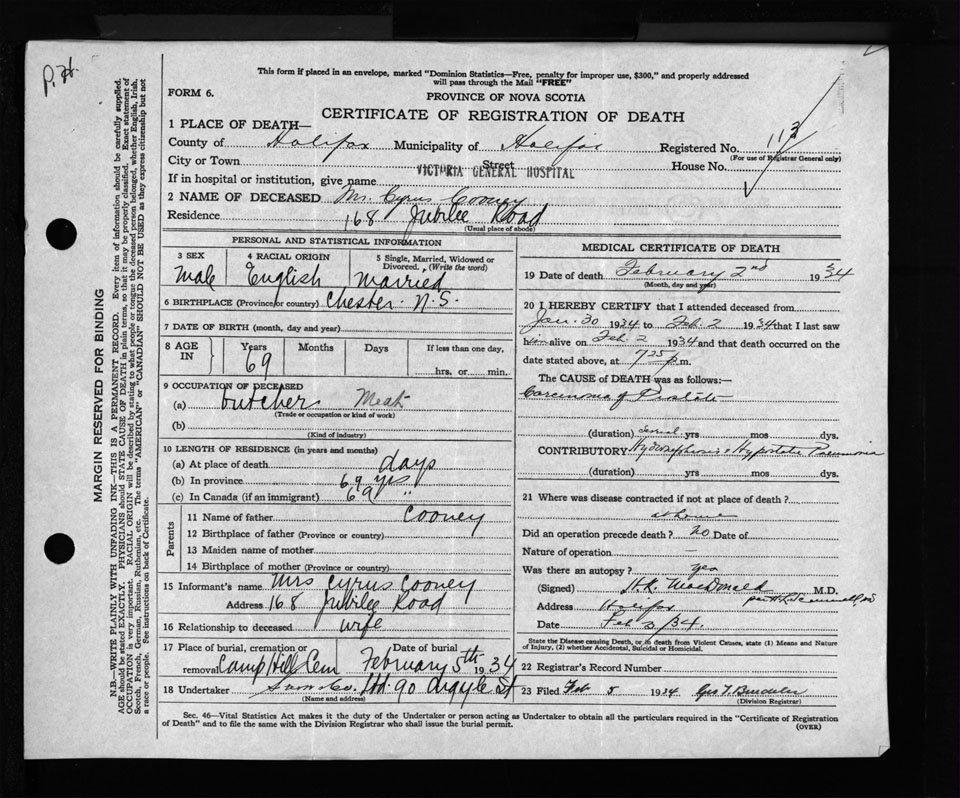 P.H.
This form if placed in an envelope, marked "Dominion Statistics—Free, penalty for improper use, $300," and properly addressed
will pass through the Mail "FREE"
FORM 6.
PROVINCE OF NOVA SCOTIA
CERTIFICATE OF REGISTRATION OF DEATH
1 PLACE OF DEATH—
County of Halifax Municipality of Halifax Registered No. 113
(For use of Registrar General only)
City or Town Street House No.
If in hospital or institution, give name VICTORIA GENERAL HOSPITAL
2 NAME OF DECEASED Mr. Cyrus Cooney
Residence 168 Jubilee Road
(Usual place of abode)
PERSONAL AND STATISTICAL INFORMATION
3 SEX 4 RACIAL ORIGIN 5 Single, Married, Widowed or
Divorced. (Write the word)
Male English Married
6 BIRTHPLACE (Province or country) Chester N.S.
7 DATE OF BIRTH (month, day and year)
8 AGE IN Years Months Days If less than one day,
69 hrs. or min.
9 OCCUPATION OF DECEASED
(a) butcher Meat
(Trade or occupation or kind of work)
(b)
(Kind of industry)
10 LENGTH OF RESIDENCE (in years and months)
(a) At place of death days
(b) In province 69 yrs
(c) In Canada (if an immigrant) 69 "
Parents
11 Name of father Cooney
12 Birthplace of father (Province or country)
13 Maiden name of mother
14 Birthplace of mother (Province or country)
15 Informant's name Mrs Cyrus Cooney
Address 168 Jubilee Road
16 Relationship to deceased wife
17 Place of burial, cremation or Date of burial
removal Camp Hill Cem February 5th 1934
18 Undertaker Snow Co. Ltd. 90 Argyle St
(Name and address)
MEDICAL CERTIFICATE OF DEATH
19 Date of death February 2nd 1934
(Month, day and year)
20 I HEREBY CERTIFY that I attended deceased from
Jan. 30 1934 to Feb. 2 1934 that I last saw
him alive on Feb. 2 1934 and that death occurred on the
date stated above, at 7 25 p m.
The CAUSE OF DEATH was as follows:—
Carcinoma of Prostate
(duration) yrs mos dys.
CONTRIBUTORY Hydronephrosis & Hypostatic Pneumonia
(duration) yrs mos dys.
21 Where was disease contracted if not at place of death ?
at home
Did an operation precede death ? no Date of
Nature of operation —
Was there an autopsy ? yes
(Signed) H.K. MacDonald M.D.
Address Halifax per
Date Feb 3/34.
State the Disease causing Death, or in death from Violent Causes, state (1) Means and Nature
of Injury, (2) whether Accidental, Suicidal or Homicidal.
22 Registrar's Record Number
23 Filed Feb 5 1934 Geo
(Division Registrar)
Sec. 46—Vital Statistics Act makes it the duty of the Undertaker or person acting as Undertaker to obtain all the particulars required in the "Certificate of Registration
of Death" and to file the same with the Division Registrar who shall issue the burial permit.
(OVER)
MARGIN RESERVED FOR BINDING
N.B.—WRITE PLAINLY WITH UNFADING INK—THIS IS A PERMANENT RECORD. Every item of information should be carefully supplied.
AGE should be stated EXACTLY. PHYSICIANS should STATE CAUSE OF DEATH in plain terms, so that it may be properly classified. Exact statement of
OCCUPATION is very important. RACIAL ORIGIN will be described by stating to what people or tongue the deceased person belonged, whether English, Irish,
Scotch, French, German, Russian, Ruthenian, etc. The terms "AMERICAN" or "CANADIAN" SHOULD NOT BE USED as they express citizenship but not
a race or people. See instructions on back of Certificate.